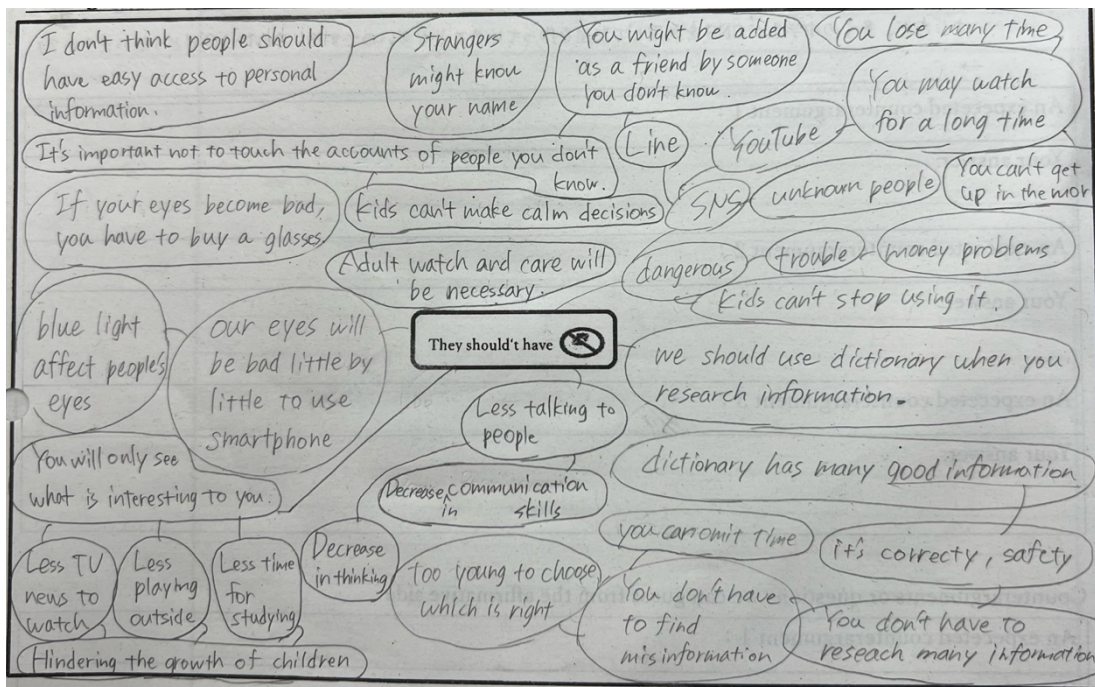 I don't think people should
have easy access to personal
information.
Strangers
might know
your name
You might be added
as a friend by someone
you don't know.
You lose many time
You may watch
for a long time
YouTube
Line
It's important not to touch the accounts of people you don't
know.
You can't get
up in the mor
unknown people
SNS
Kids can't make calm decisions
If your eyes become bad,
you have to buy a glasses.
Adult watch and care will
be necessary.
dangerous
trouble
money problems
Kids can't stop using it.
blue light
affect people's
eyes
our eyes will
be bad little by
little to use
smartphone
They should't have
we should use dictionary when you
research information.
Less talking to
people
dictionary has many good information
You will only see
what is interesting to you.
Decrease communication
in skills
you can omit time
it's correcty, safety
Less TV
news to
watch
Less
playing
outside
Less time
for
studying
Decrease
in thinking
too young to choose
which is right
You don't have
to find
misinformation
You don't have to
reseach many information
Hindering the growth of children